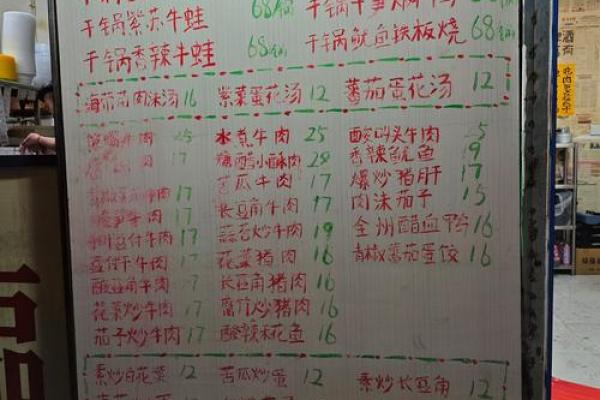 干锅紫苏牛蛙 68/锅
干锅香辣牛蛙 68/锅 干锅鱿鱼铁板烧 68/锅
海带苗肉沫汤 16 紫菜蛋花汤 12 蕃茄蛋花汤 12
牛肉 25 水煮牛肉 25 酸码头牛肉 5
牛肉 17 糖醋小酥肉 28 香辣鱿鱼 19
牛肉 17 苦瓜牛肉 17 爆炒猪肝 17
牛肉 17 长豆角牛肉 17 肉沫茄子 15
豆付牛肉 17 蒜苔炒牛肉 19 全州醋血鸭 16
豆付干牛肉 17 花菜猪肉 16 青椒蕃茄蛋饺 16
酸豆角牛肉 17 长豆角猪肉 16
花菜炒牛肉 17 腐竹炒猪肉 16
茄子炒牛肉 17 酸辣禾花鱼 16
素炒白花菜 12 苦瓜炒蛋 12 素炒长豆角 12